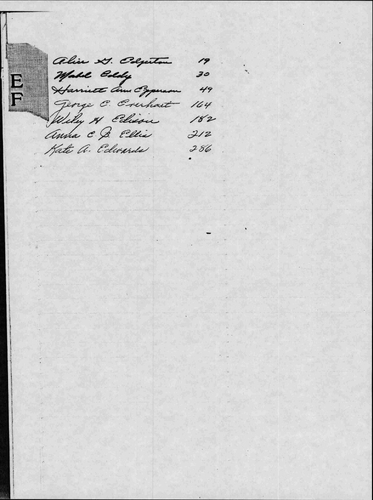 E
F
Alice G. Edgerton 19
Mabel Eddy 30
Harriett Ann Epperson 49
George E Everhart 164
Wiley H Ellison 182
Anna C B Ellis 212
Kate A. Edwards 286